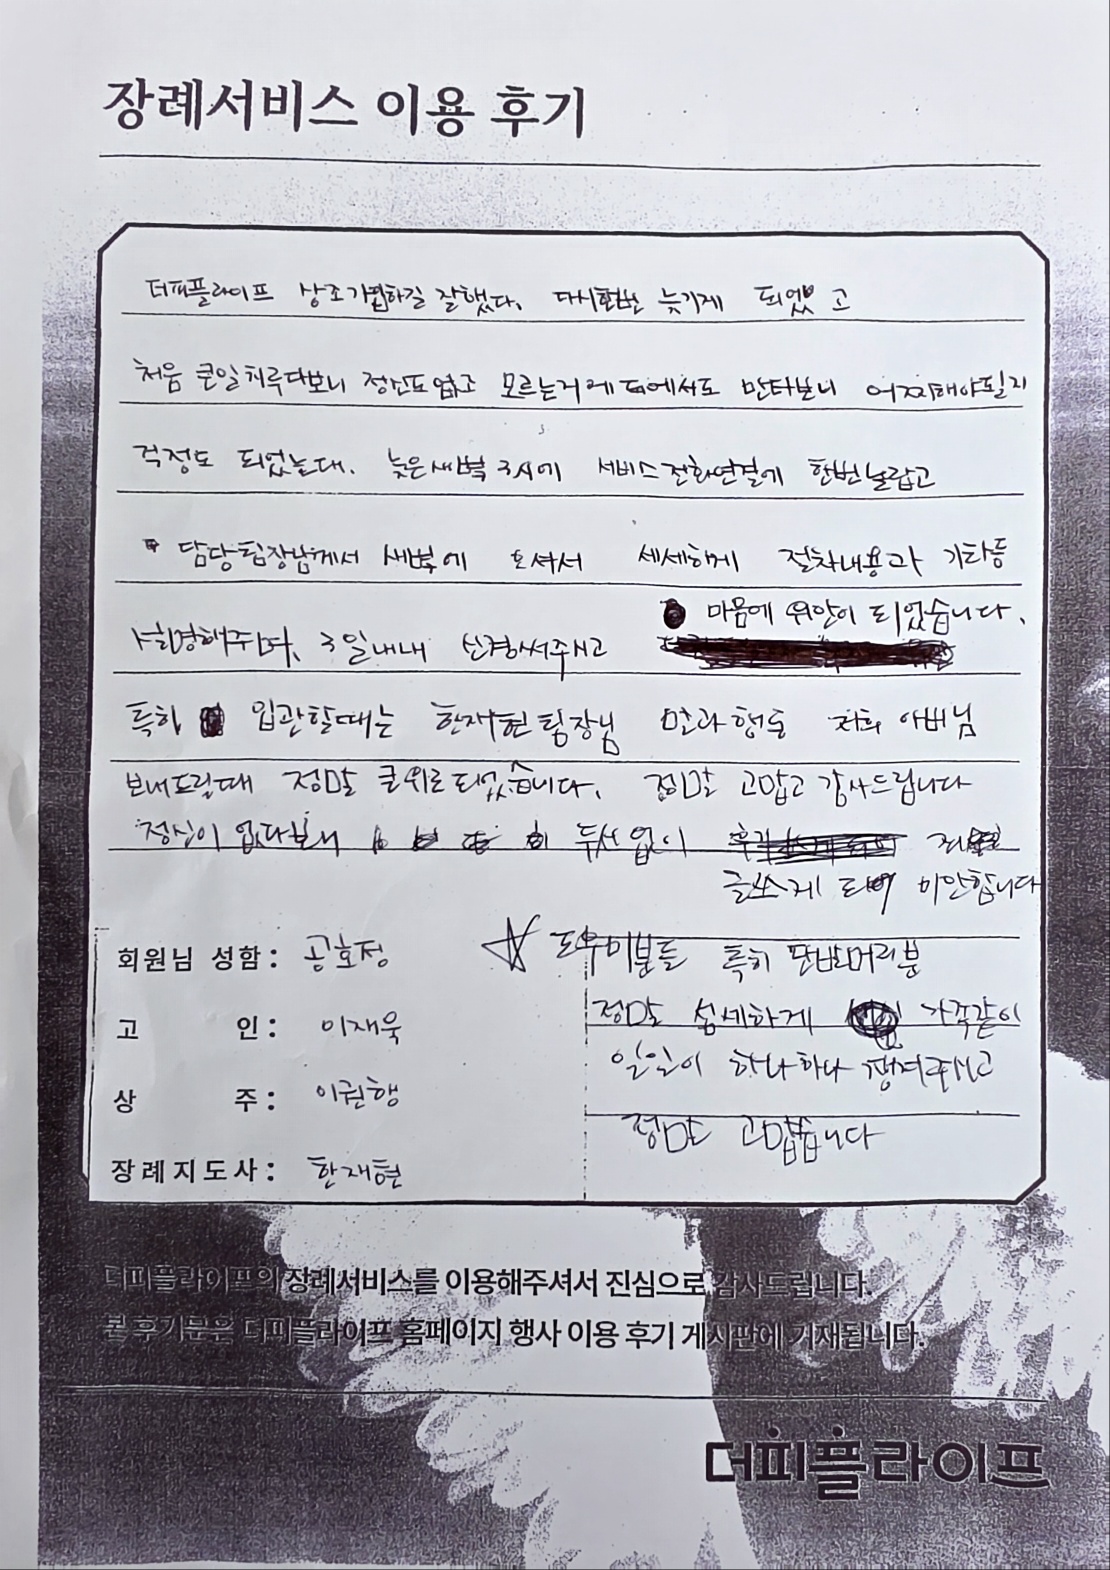 장례서비스 이용 후기
더피플라이프 상조가입하길 잘했다. 다시한번 늦기게 되었고
처음 큰일치루다보니 정신도없고 모르는거에 대에서도 만타보니 어찌해야될지
걱정도 되었는대. 늦은새벽 3시에 서비스전화연결에 한번놀랍고
담당팀장님께서 새벽에 오셔서 세세하게 절차내용과 기타등
3일내내 신경써주시고 마음에 위안이 되었습니다.
특히 입관할때는 한재현팀장님 말과행동 저희 아버님
보내드릴때 정말 큰위로되었습니다. 정말 고맙고 감사드립니다
정신이 없다보니 두서없이
글쓰게 되어 미안합니다
회원님 성함: 공호정
고 인: 이재욱
상 주: 이권행
장례지도사: 한재현
☆ 도우미분들 특히 단발머리분
정말 섬세하게 가족같이
일일이 하나하나 챙겨주시고
정말 고맙습니다
더피플라이프의 장례서비스를 이용해주셔서 진심으로 감사드립니다.
본 후기분은 더피플라이프 홈페이지 행사 이용 후기 게시판에 기재됩니다.
더피플라이프